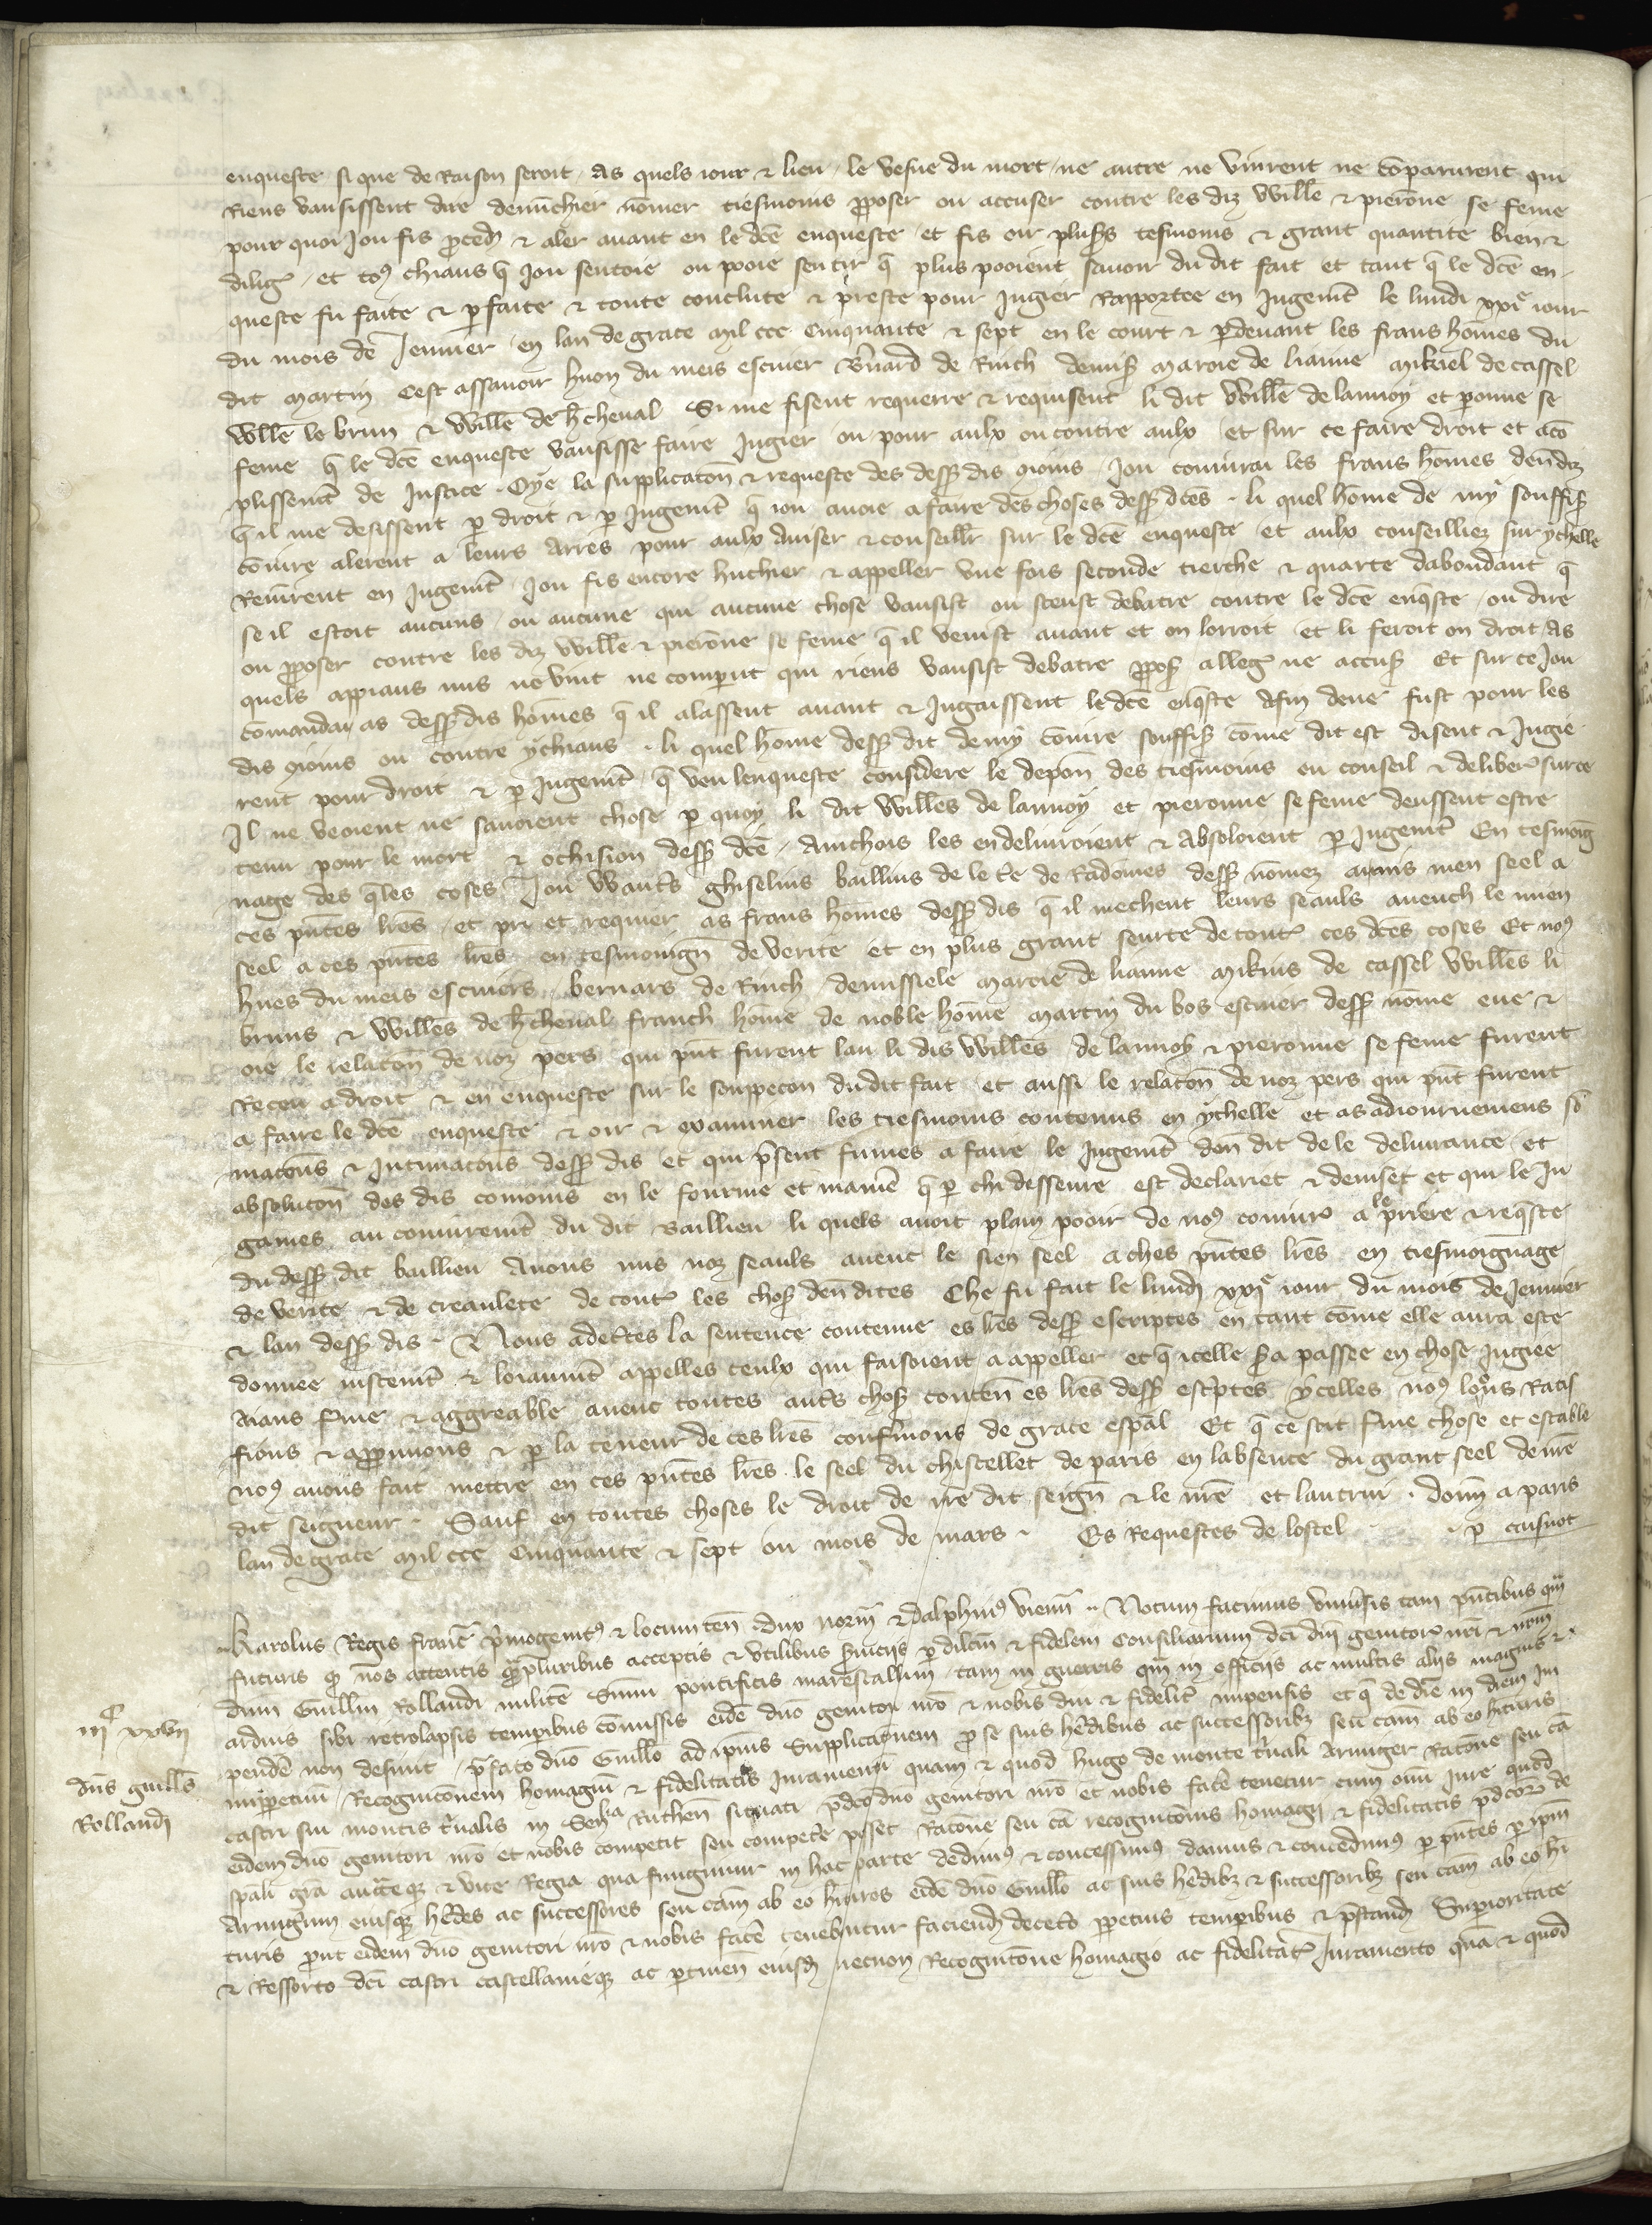 enqueste si que de Raison seroit. As quels iour & lieu. le vesue du mort. ne autre ne vinrent ne cōparurent qui
Riens vausissent dire denūchier nōmer tiesmoins ꝓposer ou accuser contre les diz Wille & pierōne se feme
pour quoi Jou fis ꝓced̄ & aler auant en le dc̄e enqueste. et fis oir pluss̄ tesmoins & grant quantite bien &
diliḡ. et toꝰ chiaus q̄ Jou sentoie ou pooie sentir q̄ plus pooient sauoir du dit fait et tant q̄ le dc̄e en
queste fu faite & ꝑfaite & toute conclute & preste pour Jugier Rapportee en Jugem̄t le lundi xxiᵉ iour
du mois de Jenuier. en lan de grace mil ccc Cinquante & sept en le court & ꝑdeuant les frans hōmes du
dit Martin Cest assauoir huon du meis escuier B̄nard de Rinch demis̄ maroie de lianne mikiel de cassel
Will̄e le brun & Will̄e de h̄cheual Si me fisent requerre & requisent li dit Will̄e de lannoy et peronne se
feme q̄ le dc̄e enqueste vausisse faire Jugier ou pour aulx ou contre aulx et sur ce faire droit et acō
plissem̄t de Justice. Oye la supplicatōn & requeste des dess̄ dis 9ioins. Jou coniurai les frans hōmes den̄diz
q̄ il me desissent ꝑ droit & ꝑ Jugem̄t q̄ iou auoie a faire des choses dess̄ dc̄es. li quel hōme de my souffis̄
cōiure alerent a leurs Arres pour aulx auiser & conseill̄r sur le dc̄e enqueste et aulx conseilliez sur ychelle
Reuīrent en Jugem̄t Jou fis encore huchier & appeller vne fois seconde tierche & quarte dabondant q̄
se il estoit aucuns. ou aucune qui aucune chose vausist ou sceust debatre contre le dc̄e enq̄ste. ou dire
ou ꝓposer contre les diz Wille & pierōne se feme q̄ il venist auant et on lorroit et li feroit on droit. As
quels appiaus nus ne vint ne comꝑut qui riens vausist debatre ꝓpos̄ alleg̃ ne accus̄ Et sur ce Jou
cōmandai as dess̄ dis hōmes q̄ il alassent auant & Jugaissent le dc̄e enq̄ste Afin deue fust pour les
dis 9ioins ou contre ychiaus. li quel hōme dess̄ dit de my cōiure souffis̄ cōme dit est disent & Jugie
rent pour droit & ꝑ Jugem̄t q̄ veu lenqueste considere le depōn des tiesmoins eu conseil & deliber̄ sur ce
Jl ne veoient ne sauoient chose ꝑ quoy li dit Will̄es de lannoy et pieronne se feme deussent estre
tenu pour le mort & ochision dess̄ dc̄e. Ainchois les en deliuroient & absoloient ꝑ Jugem̄t En tesmoing
nage des q̄les coses Jou Want̄s ghiselins baillius de le t̄re de Radomes dess̄ nōmez ai mis men seel a
ces pn̄tes lr̄es. et pri et requier as frans hōmes dess̄ dis q̄ il mechent leurs seauls auench le mien
seel a ces pn̄tes lr̄es en tesmoingn̄ de verite et en plus grant seurte de tout̄ ces dc̄es coses Et noꝰ
hues du meis escuiers. bernars de Rinch demissiele maroie de lianne mikius de cassel Will̄es li
bruns & Will̄es de h̄cheual franch hōme de noble hōme martin du bos escuier dess̄ nōme eue &
oie le relatōn de noz pers qui pn̄t furent lau li dis Will̄es de lannoy & pieronne se feme furent
Receu a droit & en enqueste sur le souppecon du dit fait et aussi le relatōn de noz pers qui pn̄t furent
a faire le dc̄e enqueste & oir & examiner les tiesmoins contenus en ychelle et as adiournemens so̅
matōns & Jntimatōns dess̄ dis et qui p̄sent fumes a faire le Jugem̄t den̄ dit de le deliurance et
absolutōn des dis conioins en le fourme et manie̅ q̄ ꝑ chi desseure est declariet & deuiset et qui le Ju
games au coniurem̄t du dit Baillieu li quels auoit plain pooir de noꝰ coniur̄ a le priere & req̄ste
du dess̄ dit baillieu Auons mis noz seauls auenc le sien seel a ches pn̄tes lr̄es en tiesmoignage
de verite & de creaulete de tout̄ les chos̄ den̄dites Che fu fait le lundj xxiᵉ iour du mois de Jenuier
& lan dess̄ dis. Nous adc̄tes la sentence contenue es lr̄es dess̄ escriptes en tant cōme elle aura este
donnee iustem̄t & loiaum̄t appelles ceulx qui faisoient a appeller et q̄ icelle s̄ra passee en chose Jugiee
Aians f̄me & aggreable auenc toutes aut̄s chos̄ conten̄ es lr̄es dess̄ escp̄tes ycelles noꝰ loōns Ratif
fions & apprnuons & ꝑ la teneur de ces lr̄es conf̄mons de grace esp̄al Et q̄ ce soit f̄me chose et estable
noꝰ auons fait mettre en ces pn̄tes lr̄es le seel du chastellet de paris en labsence du grant seel de nr̄e
dit seigneur. Sauf en toutes choses le droit de nr̄e dit seign̄ & le nr̄e et lautrui. donn̄ a paris
lan de grace mil ccc Cinquante & sept ou mois de mars. Es Requestes de lostel . p cuisnot
Karolus Regis franc̄ p̄mogenitꝰ & locum ten̄ dux norm̄ & dalphinꝰ vienn̄. Notum facimus vniu̅sis tam pn̄tibus qm̄
futuris qꝫ nos attentis q̄ꝫpluribus acceptis & vtilibus s̄uicijs ꝑ dilc̄m & fidelem Consiliarium dc̄i dn̄i genitor̄ nr̄i & nr̄m
dn̄m Guill̄m Rollandi milite̅ Summi pontificis marescallum. tam in guerris qm̄ in officijs ac multis alijs magnis &
arduis sibi retrolapsis temꝑibus cōmissis eide̅ dn̄o genitori nr̄o & nobis diu & fidelit̄ impensis et q̄ de die̅ in diem im
pende̅ non desinit. p̄fato dn̄o Guill̄o ad ip̄ius Supplicatōnem ꝓ se suis he̅dibus ac successoribꝫ seu cam̄ ab eo h̄ituris
imꝑpetuū. Recognitōnem homagiū & fidelitatis Juramentū quam & quod hugo de monte t̄uali Armiger Ratōne seu cā
castri sui montis t̄ualis in Sen̄ia Ruthen̄ situati p̄dc̄o dn̄o genitori nr̄o et nobis face̅ tenetur cum om̄i Jure quod
eidem dn̄o genitori nr̄o et nobis competit seu compete̅ posset Ratōne seu cā recognitōnis homagij & fidelitatis p̄dc̄or̄ de
sp̄ali gr̄a auct̄teqꝫ & vice Regia qua fungimur in hac parte dedimꝰ & concessimꝰ damus & concedimꝰ ꝑ pn̄tes ꝑ ip̄m
Armig̅um eiusqꝫ he̅des ac successores seu cam̄ ab eo h̄ituros eide̅ dn̄o Guill̄o ac suis he̅dibꝫ & successoribꝫ seu cam̄ ab eo h̄i
turis ꝓut eidem dn̄o genitori nr̄o & nobis face̅ tenebantur faciend̄ dece̅o ꝑpetuis temꝑibus & p̄stand̄ Supioritate
& Ressorto dc̄i castri castellanieqꝫ ac ꝑtinen̄ eiusd̄ necnon Recognitōne homagio ac fidelitat̄ Juramento quā & quod
iijᶜ xxvij
dn̄s guill̄s
Rollandj